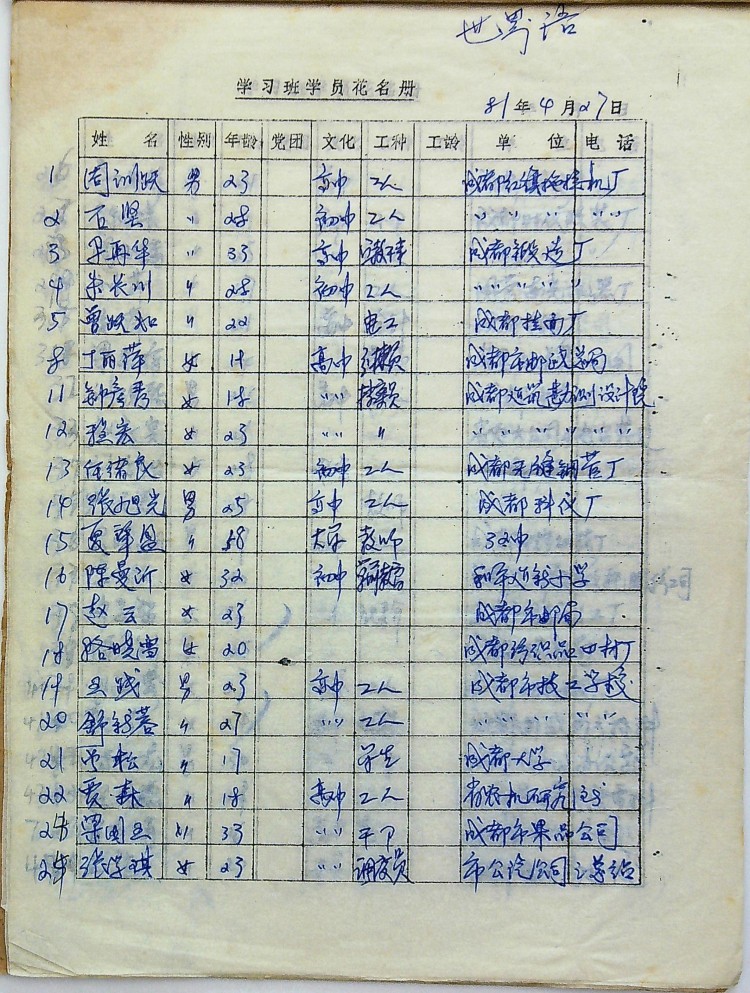 世界语
学习班学员花名册
81年4月27日
姓名 性别 年龄 党团 文化 工种 工龄 单位 电话
1 周训跃 男 23 高中 工人 成都红旗拖拉机厂
2 石坚 〃 28 初中 工人 〃 〃 〃 〃 〃
3 再华 〃 33 高中 成都锻造厂
4 朱长川 〃 28 初中 工人 〃 〃 〃 〃 〃
5 曾跃知 〃 22 电工 成都挂面厂
8 丁丽萍 女 19 高中 成都市邮政局
11 女 18 〃 〃 成都建筑勘测设计院
12 程宏 女 23 〃 〃 〃 〃 〃 〃 〃 〃 〃
13 任绪良 女 23 初中 工人 成都无缝钢管厂
14 张旭光 男 25 高中 工人 成都科仪厂
15 夏 〃 58 大学 教师 32中
16 陈曼沂 女 32 初中 小学
17 赵云 女 23 成都市邮局
18 骆晓雪 女 20 成都纺织品 厂
19 王践 男 23 高中 工人 成都市技工学校
20 舒新蓉 〃 27 〃 〃 工人 〃 〃 〃 〃 〃
21 松 〃 17 学生 成都大学
22 贾森 〃 18 高中 工人 省农机研究
24 梁国 33 〃 〃 干部 成都市果品公司
25 张学琪 女 23 调度员 市公汽公司